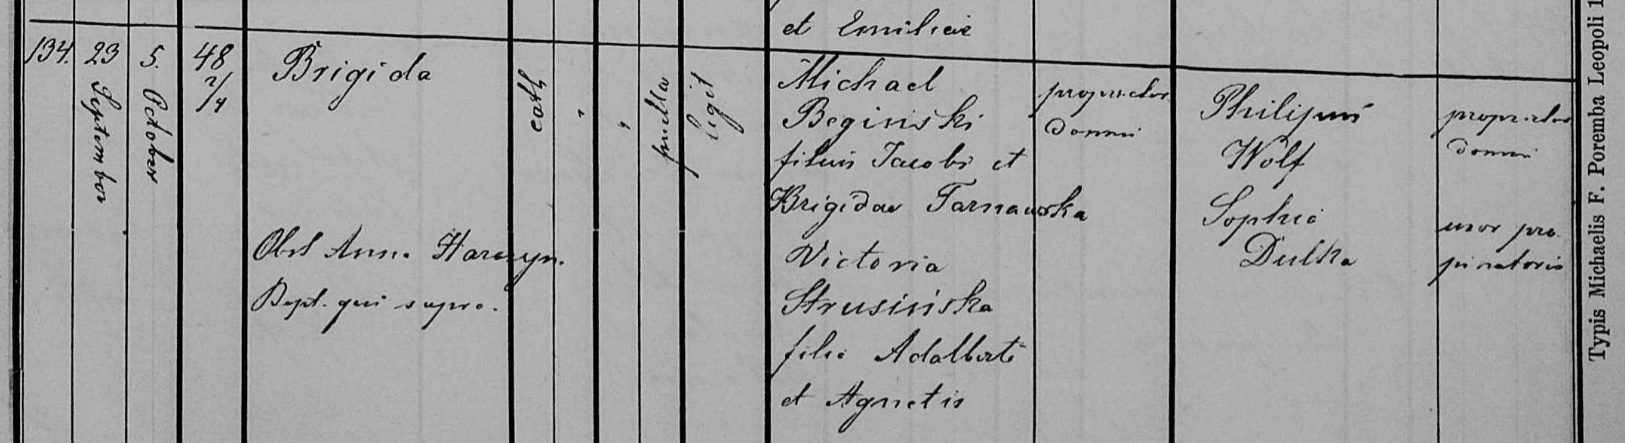 et Emiliae
134. 23 Septembor 5. October 48 2/4 Brigida cath " " puella legit
Michael
Beginski
filius Jacobi et
Brigidae Tarnawska
Victoria
Strusińska
filia Adalberti
et Agnetis
proprietor
domui
Philipus
Wolf
Sophia
Dulka
proprietor
domui
uxor pro
pinatoris
Obst Anna
Bapt. qui supra.
Typis Michaelis F. Poremba Leopoli 1